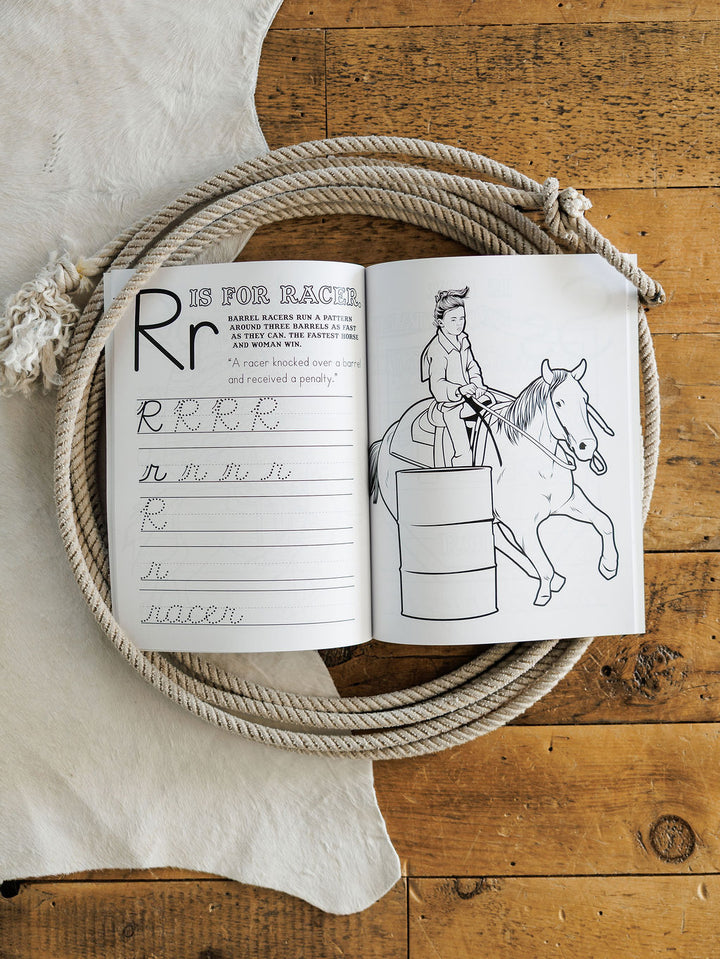 Rr IS FOR RACER.
BARREL RACERS RUN A PATTERN
AROUND THREE BARRELS AS FAST
AS THEY CAN. THE FASTEST HORSE
AND WOMAN WIN.
"A racer knocked over a barrel
and received a penalty."
R R R R
r r r r
R
r
racer